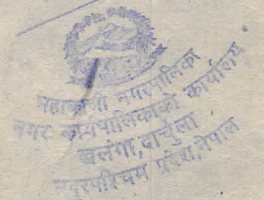 महाकाली नगरपालिका
नगर कार्यपालिकाको कार्यालय
खलंगा, दार्चुला
सुदूरपश्चिम प्रदेश, नेपाल